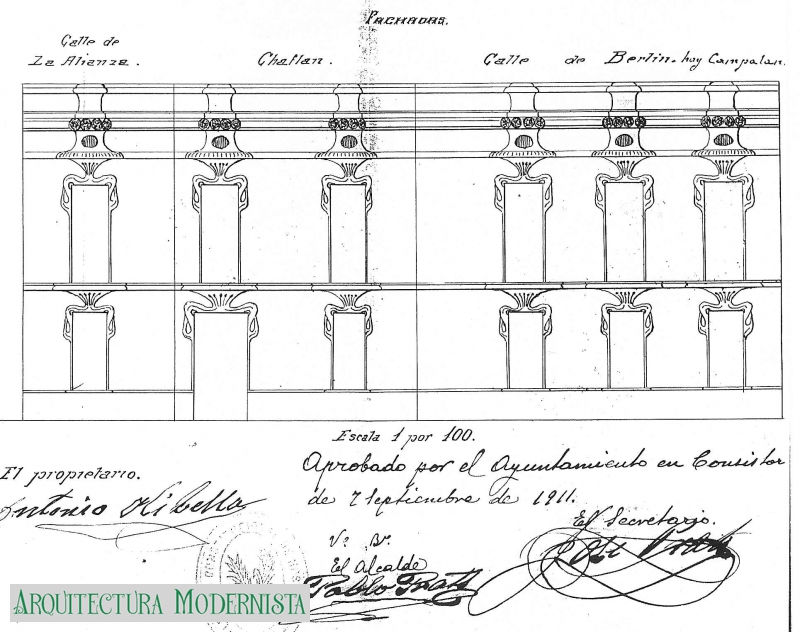 FACHADAS.
Calle de
La Alianza.
Chaflan.
Calle de Berlin. hoy Campalan.
Escala 1 por 100.
Aprobado por el Ayuntamiento en Consistor
de 7 Septiembre de 1911.
El propietario.
Antonio
El Secretario.
José
Vº Bº
El Alcalde
Pablo
ARQUITECTURA MODERNISTA